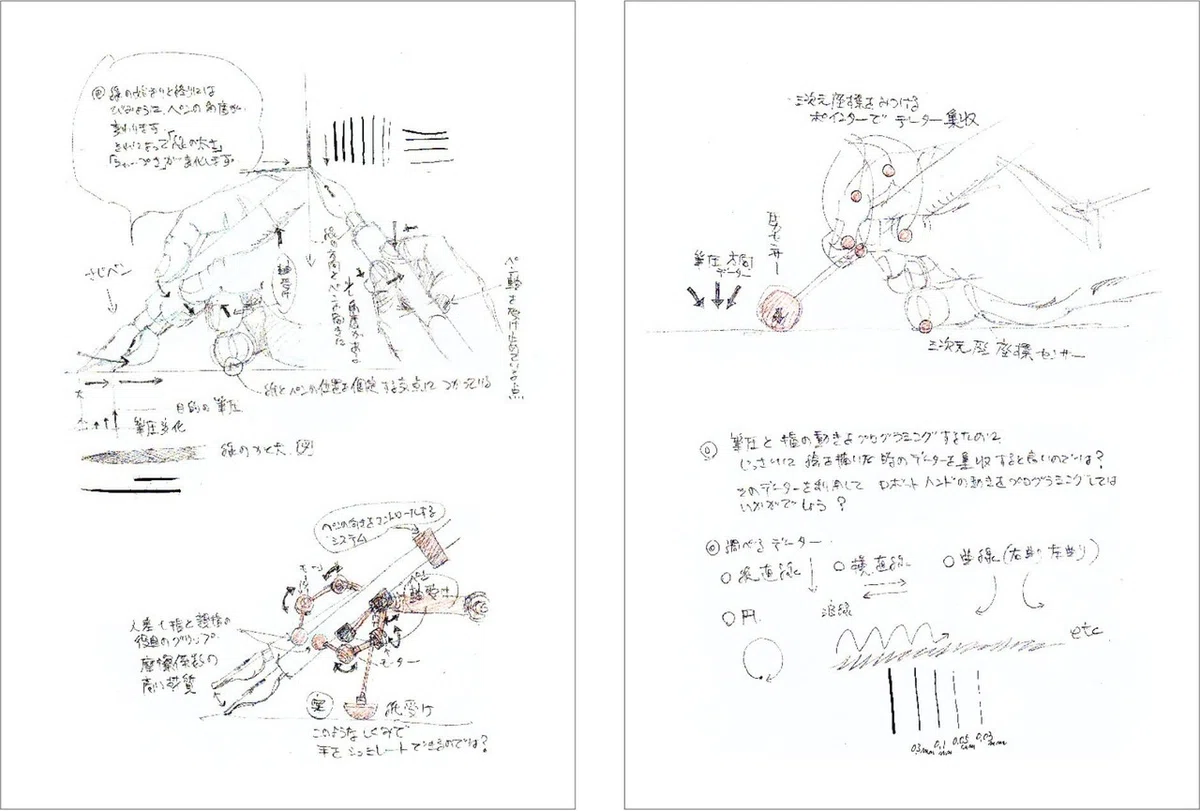 線の始まりと終わりには
ペンの角度が
変わります
「線の太さ」
「シャープさ」が変化します。
さじペン
軸受け
紙とペンの位置を固定する支点につかっている
目的の筆圧
筆圧変化
ペンの向きをコントロールする
システム
モーター
ペン
軸受け
人差し指と親指の
役目のグリップ
摩擦係数の
高い物質
モーター
紙受け
このようなしくみで
手をシュミレートできるのでは?
三次元座標をみつける
ポインターでデーター集収
圧センサー
筆圧 方向
データー
三次元座標センサー
◎ 筆圧と指の動きをプログラミングするために
じっさいに線を描いた時のデーターを集収すると良いのでは?
そのデーターを利用して ロボットハンドの動きをプログラミングしては
いかがでしょう?
◎ 調べるデーター
○ 縦直線
○ 横直線
○ 曲線(右曲り 左曲り)
○ 円
波線
etc
0.1
mm
0.05
mm
0.03
mm